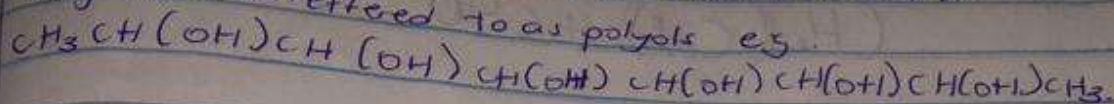 to as polyols eg.
CH3CH(OH)CH(OH)CH(OH)CH(OH)CH(OH)CH(OH)CH3.